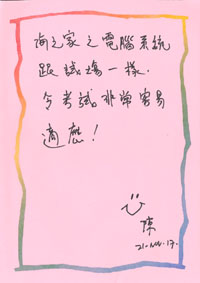 尚之家之電腦系統
跟試場一樣.
令考試非常容易
適應！
陳